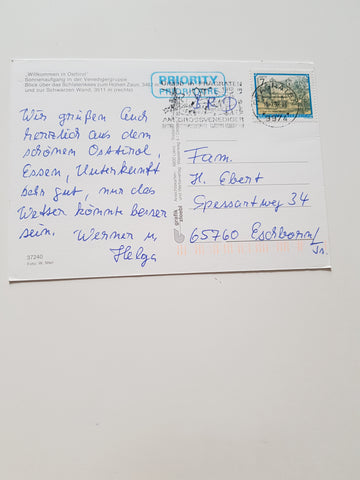 "Willkommen in Osttirol"
Sonnenaufgang in der Venedigergruppe
Blick über das Schlatenkees zum Hohen Zaun,
und zur Schwarzen Wand, 3511 m (rechts)
PRIORITY
PRIORITAIRE
AM GROSSVENEDIGER
9974
BRD
Wir grüßen Euch
herzlich aus dem
schönen Osttirol,
Essen, Unterkunft
sehr gut, nur das
Wetter könnte besser
sein. Werner u.
Helga
37240
Fam.
H. Ebert
Spessartweg 34
65760 Eschborn/
Ts.